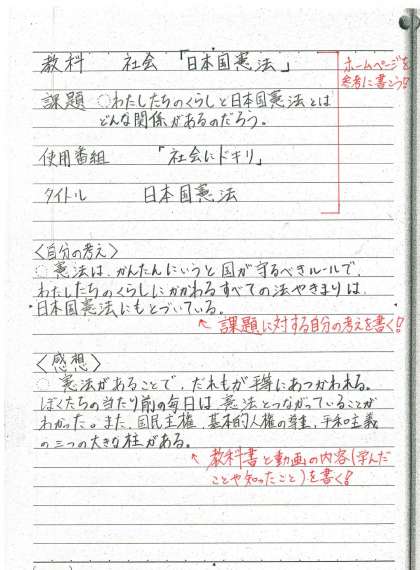 教科 社会 「日本国憲法」
ホームページを
参考に書こう!
課題 ○わたしたちのくらしと日本国憲法とは
どんな関係があるのだろう。
使用番組 「社会にドキリ」
タイトル 日本国憲法
<自分の考え>
○憲法は、かんたんにいうと国が守るべきルールで、
わたしたちのくらしにかかわるすべての法やきまりは、
日本国憲法にもとづいている。
↖課題に対する自分の考えを書く!
<感想>
○憲法があることで、だれもが平等にあつかわれる。
ぼくたちの当たり前の毎日は憲法とつながっていることが
わかった。また、国民主権、基本的人権の尊重、平和主義
の三つの大きな柱がある。
↖教科書と動画の内容(学んだ
ことや知ったこと)を書く!